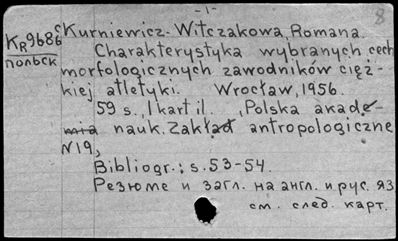 -1-
8
KR9686c Kurniewicz-Witczakowa, Romana.
польск
Charakterystyka wybranych cech
morfologicznych zawodników cięż-
kiej atletyki. Wrocław, 1956.
59 s., 1 kart il. „Polska akade-
mia nauk. Zakład antropologiczne
N19,
Bibliogr.: s. 53-54.
Резюме и загл. на англ. и рус. яз
см. след. карт.